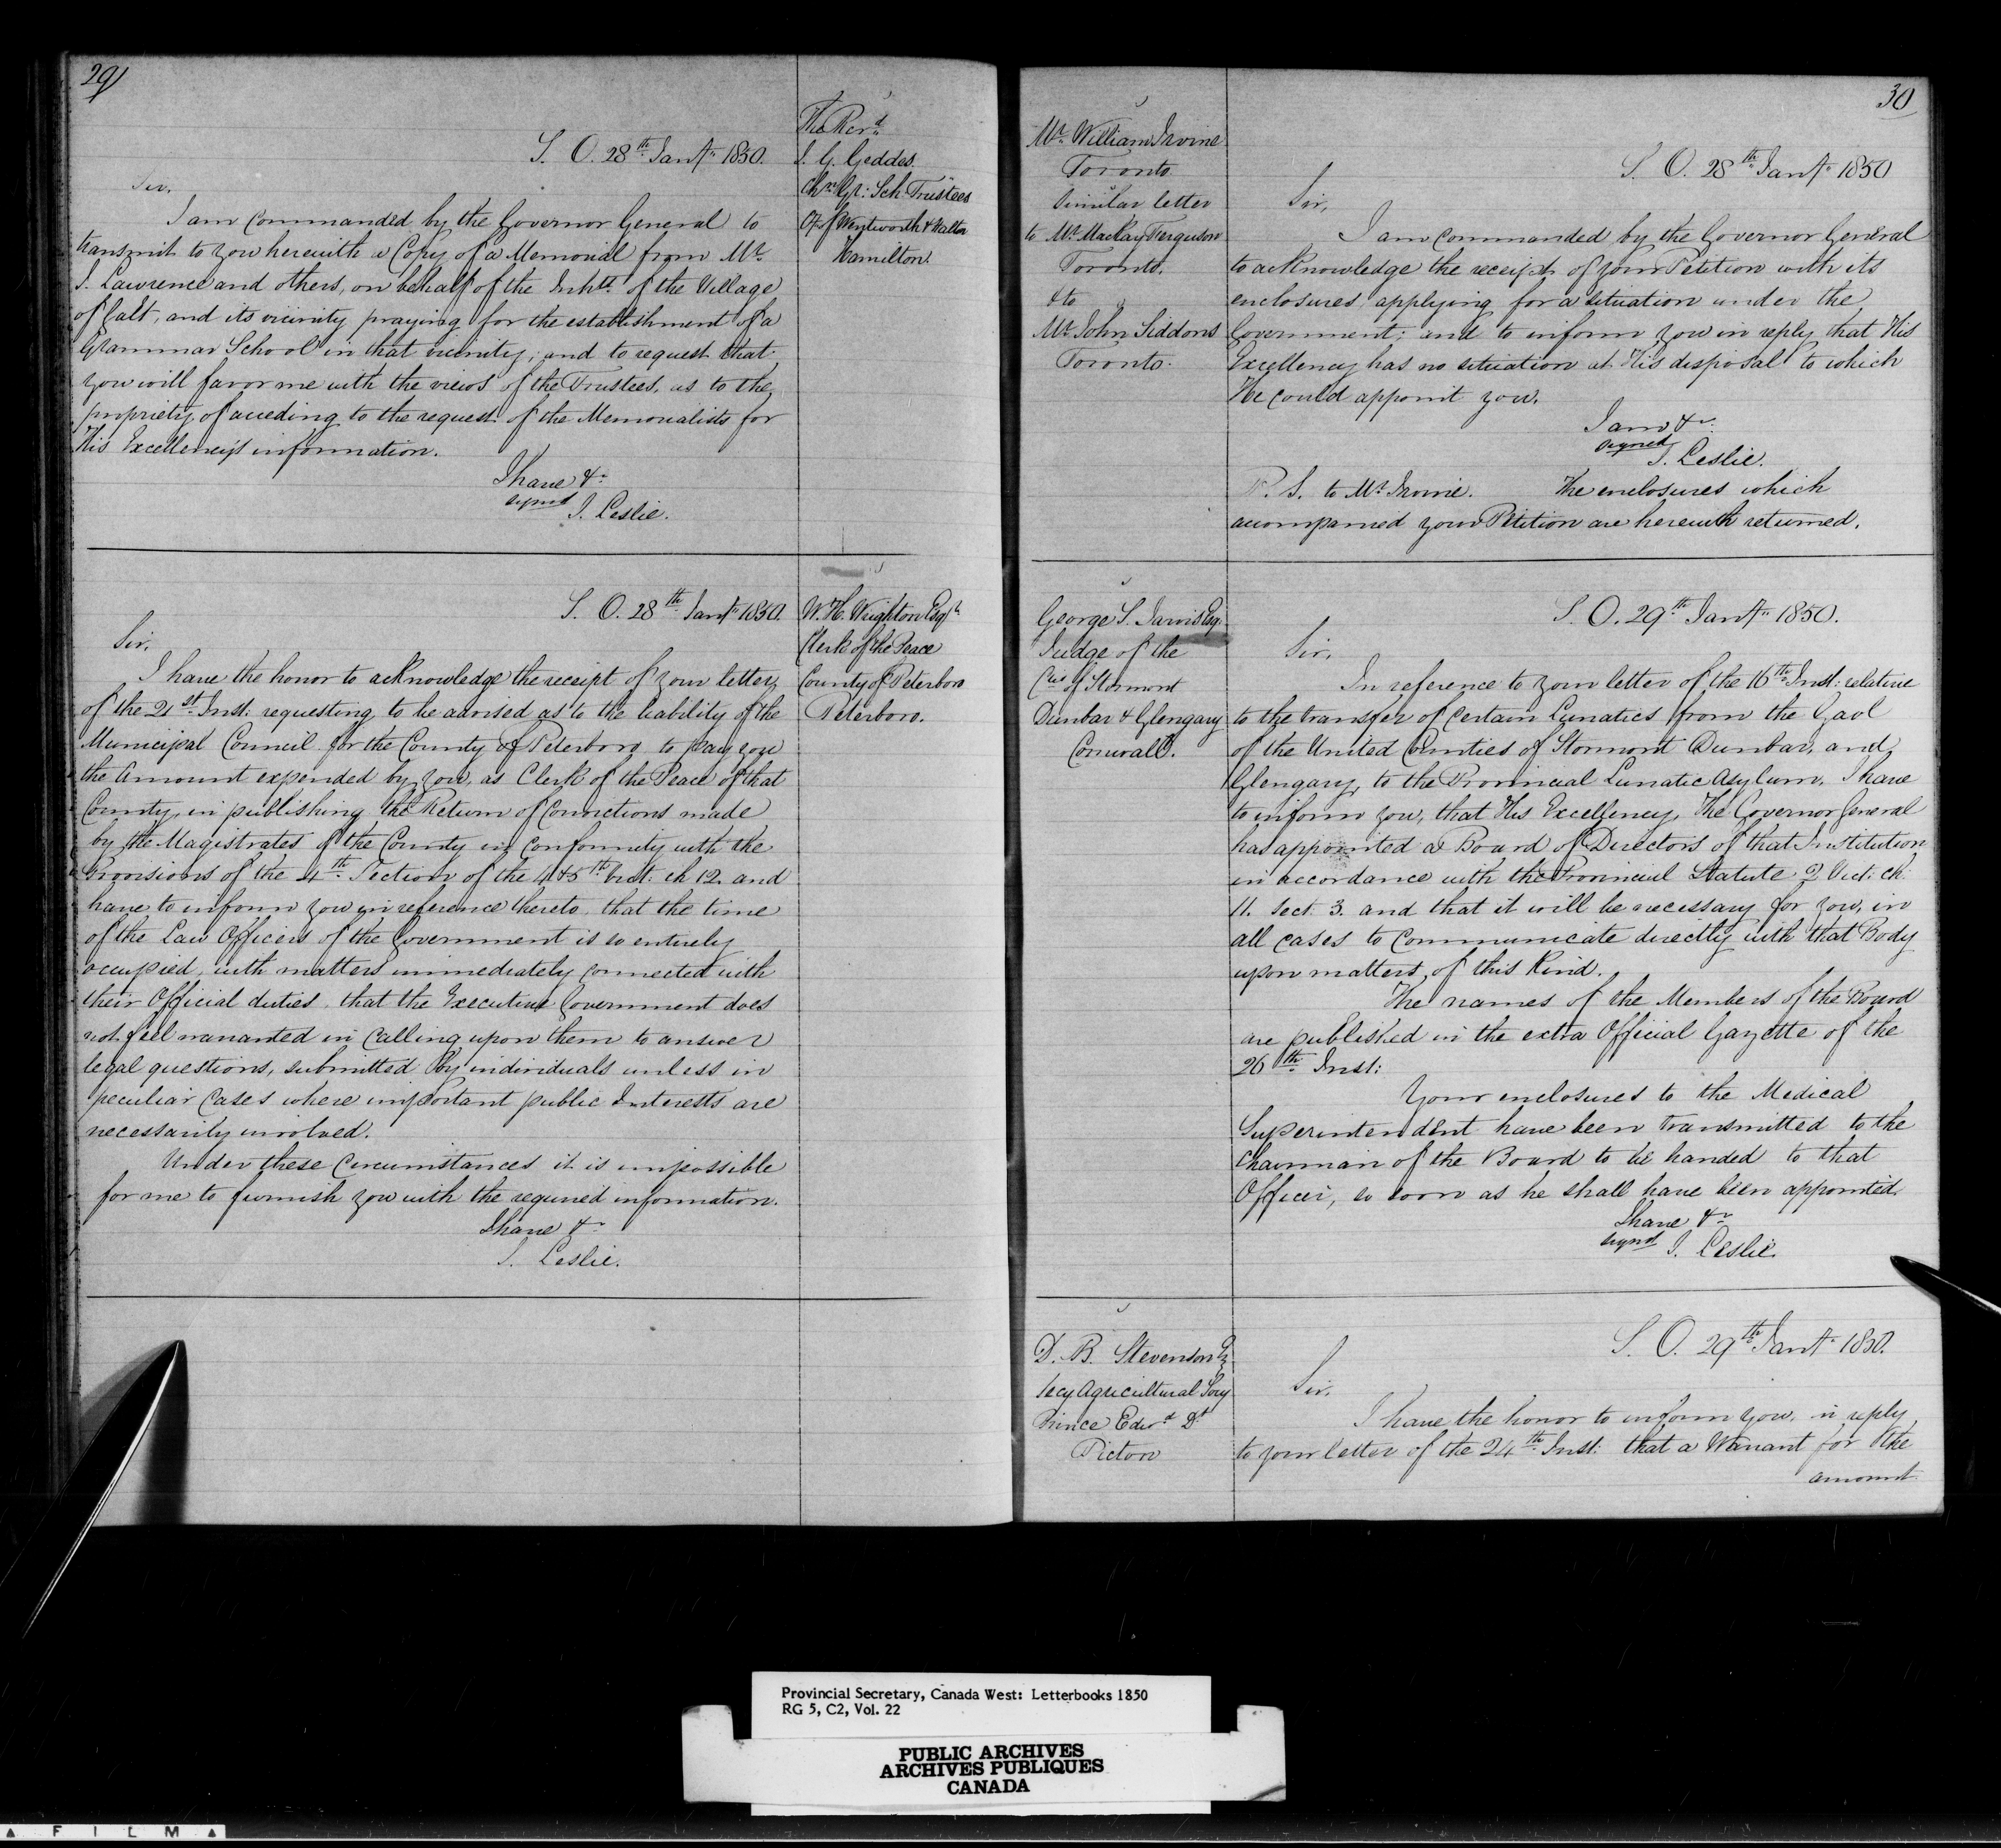 29
The Revd
S. O. 28th Jany 1850.
J. G. Geddes.
Chn Gr: Sch. Trustees
Cy of Wentworth & Halton
Hamilton.
Sir,
I am commanded by the Governor General to
transmit to you herewith a Copy of a Memorial from Mr.
J. Lawrence and others, on behalf of the Inhts of the Village
of Galt, and its vicinity praying for the establishment of a
Grammar School in that vicinity, and to request that
you will favor me with the views of the Trustees, as to the
propriety of acceding to the request of the Memorialists for
His Excellency's information.
I have &c
signed J. Leslie.
S. O. 28th Jany 1850.
W. H. Wrighton Esqr
Clerk of the Peace
County of Peterboro
Peterboro.
Sir,
I have the honor to acknowledge the receipt of your letter
of the 21st Inst: requesting to be advised as to the liability of the
Municipal Council for the County of Peterboro to pay you
the Amount expended by you, as Clerk of the Peace of that
County, in publishing the Return of Convictions made
by the Magistrates of the County in conformity with the
Provisions of the 4th Section of the 4 & 5th Vict. ch 12. and
have to inform you in reference thereto, that the time
of the Law Officers of the Government is so entirely
occupied, with matters immediately connected with
their Official duties, that the Executive Government does
not feel warranted in calling upon them to answer
legal questions, submitted by individuals unless in
peculiar Cases where important public Interests are
necessarily involved.
Under these Circumstances it is impossible
for me to furnish you with the required information.
I have &c
J. Leslie.
30
Mr. William Irvine
Toronto
Similar letter
to Mr. Mackay Ferguson
Toronto.
& to
Mr. John Siddons
Toronto.
S. O. 28th Jany 1850
Sir,
I am commanded by the Governor General
to acknowledge the receipt of your Petition with its
enclosures, applying for a situation under the
Government; and to inform you in reply that His
Excellency has no situation at His disposal to which
He could appoint you.
I am &c
signed
J. Leslie.
P. S. to Mr. Irvine. The enclosures which
accompanied your Petition are herewith returned.
George S. Jarvis Esq.
Judge of the
Cies of Stormont
Dunbar & Glengary
Cornwall.
S. O. 29th Jany 1850.
Sir,
In reference to your letter of the 16th Inst: relative
to the transfer of Certain Lunatics from the Gaol
of the United Counties of Stormont Dunbar, and
Glengary, to the Provincial Lunatic Asylum, I have
to inform you, that His Excellency, The Governor General
has appointed a Board of Directors of that Institution
in accordance with the Provincial Statute 2 Vict: ch:
11. Sect. 3. and that it will be necessary for you, in
all cases to communicate directly with that Body
upon matters of this Kind.
The names of the Members of the Board
are published in the extra Official Gazette of the
26th Inst:
Your enclosures to the Medical
Superintendent have been transmitted to the
Chairman of the Board to be handed to that
Officer, so soon as he shall have been appointed.
I have &c
signed J. Leslie.
D. B. Stevenson Eq
Secy Agricultural Socy
Prince Edwd Dt
Picton
S. O. 29th Jany 1850.
Sir,
I have the honor to inform you, in reply
to your letter of the 24th Inst: that a Warrant for the
amount
Provincial Secretary, Canada West: Letterbooks 1850
RG 5, C2, Vol. 22
PUBLIC ARCHIVES
ARCHIVES PUBLIQUES
CANADA
FILM